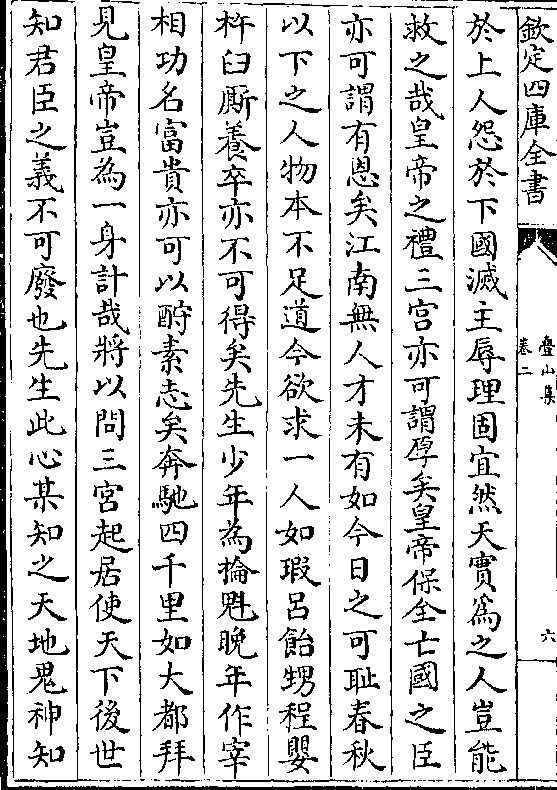 欽定四庫全書
疊山集
卷二
六
於上人怨於下國滅主辱理固宜然天實爲之人豈能
救之哉皇帝之禮三宫亦可謂厚矣皇帝保全亡國之臣
亦可謂有恩矣江南無人才未有如今日之可耻春秋
以下之人物本不足道今欲求一人如瑕吕飴甥程嬰
杵臼厮養卒亦不可得矣先生少年為掄魁晚年作宰
相功名富貴亦可以酧素志矣奔馳四千里如大都拜
見皇帝豈為一身計哉將以問三宫起居使天下後世
知君臣之義不可廢也先生此心某知之天地鬼神知